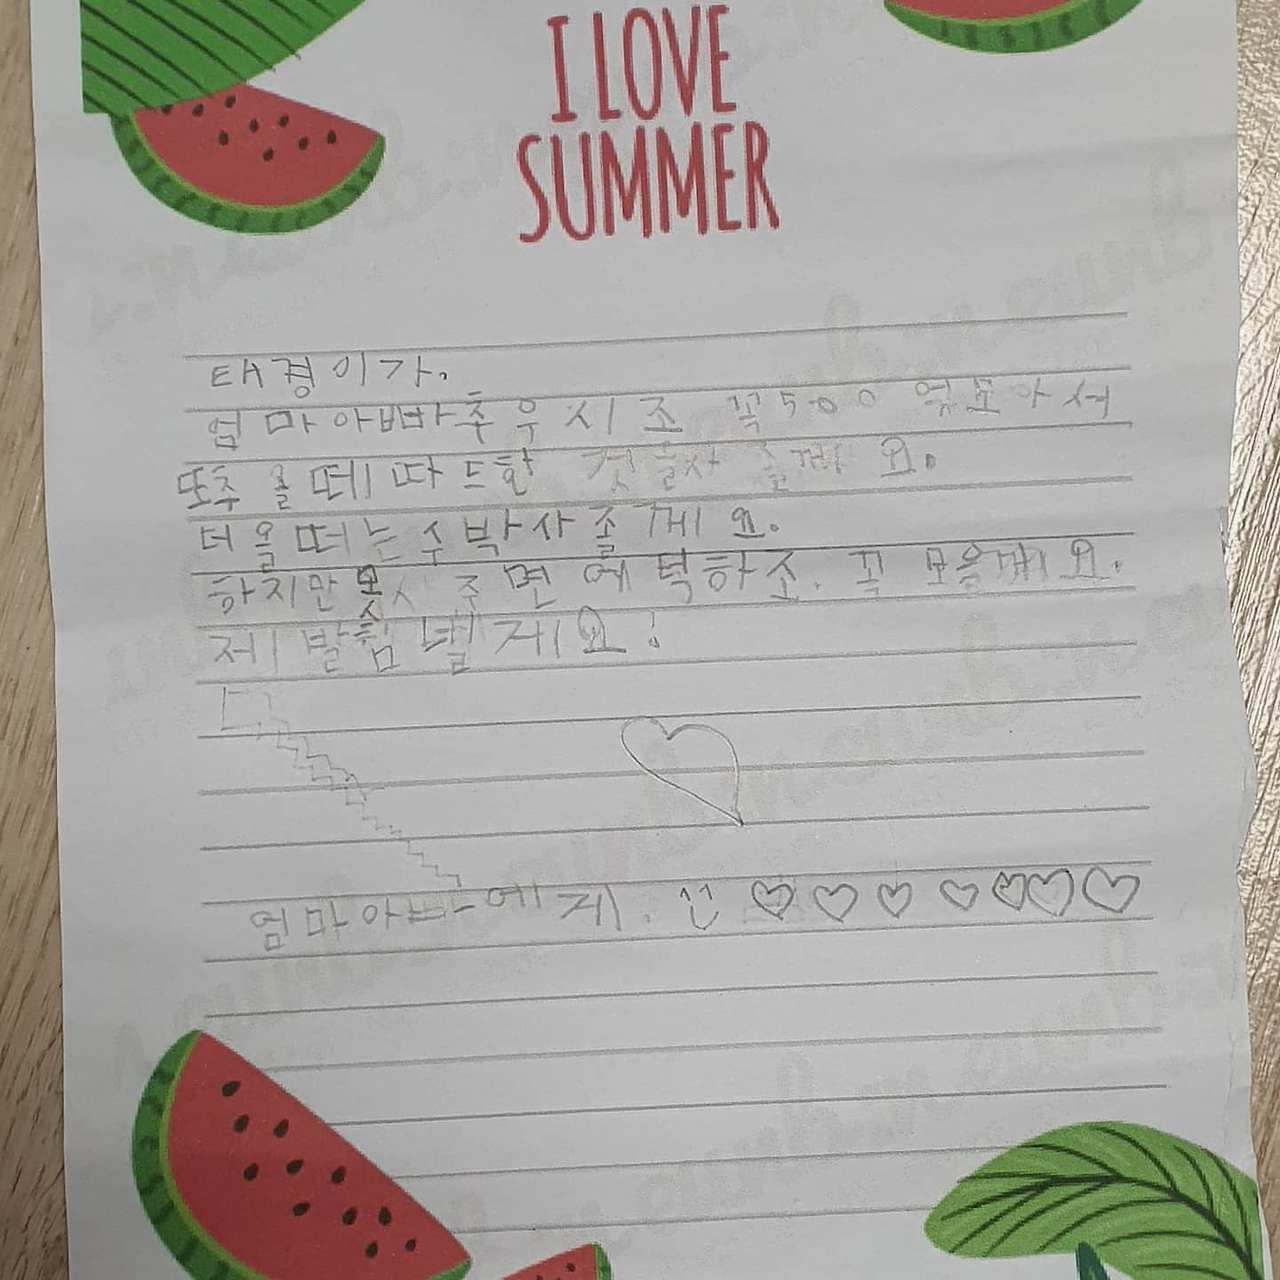 I LOVE
SUMMER
태경이가.
엄마아빠추우시조 꼭500억모아서
또추울떼따드한 것들사줄께요.
더울떠는수박사줄게요.
하지만못사주면 어떡하조. 꼭 모을께요.
제발힘낼게요!
엄마아빠에게.